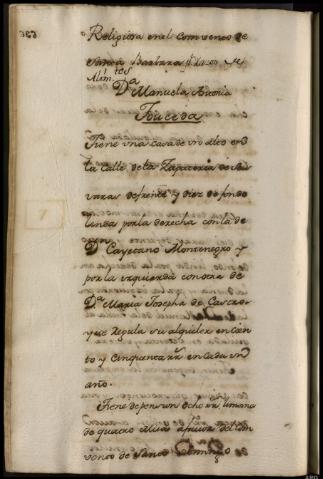 Religiosa en el Convento de
Santa Barbara
Alim.tos
D.a Manuela Antonia
Touceda
Tiene una Casa de un alto en
la Calle de la Zapateria de
varas de frente y diez de fondo
linda por la derecha con la de
Dn Cayetano Montenegro y
por la izquierda con otra de
D.a Maria Josepha de Castro
y se regula su alquiler en Cien
to y Cinquenta rr.s en Cada un
año.
Tiene de pension ocho rr.s limosna
de quatro misas a favor del Con
vento de Santo Domingo de